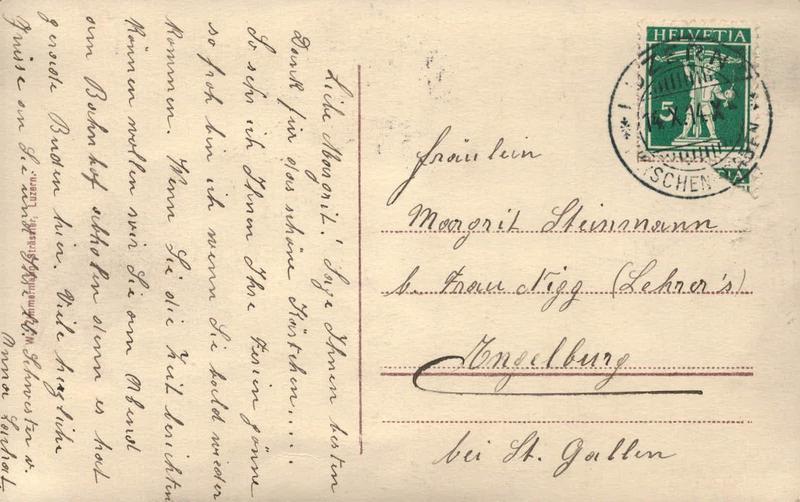 Liebe Margrit! Sage Ihnen besten
Dank für das schöne Kärtchen....
So sehr ich Ihnen Ihre Ferien gönne
so froh bin ich wenn Sie bald wieder
kommen. Wenn Sie die Zeit berichten
können wollen wir Sie am Abend
am Bahnhof abholen denn es hat
gerade Buden hier. Viele herzliche
Grüsse an Sie und Ihre lb. Schwester v.
Anna
Luzern.
HELVETIA
5
LUZERN
14.X.14.X
Fräulein
Margrit Steinmann
b. Frau Nigg (Lehrer's)
Engelburg
bei St. Gallen